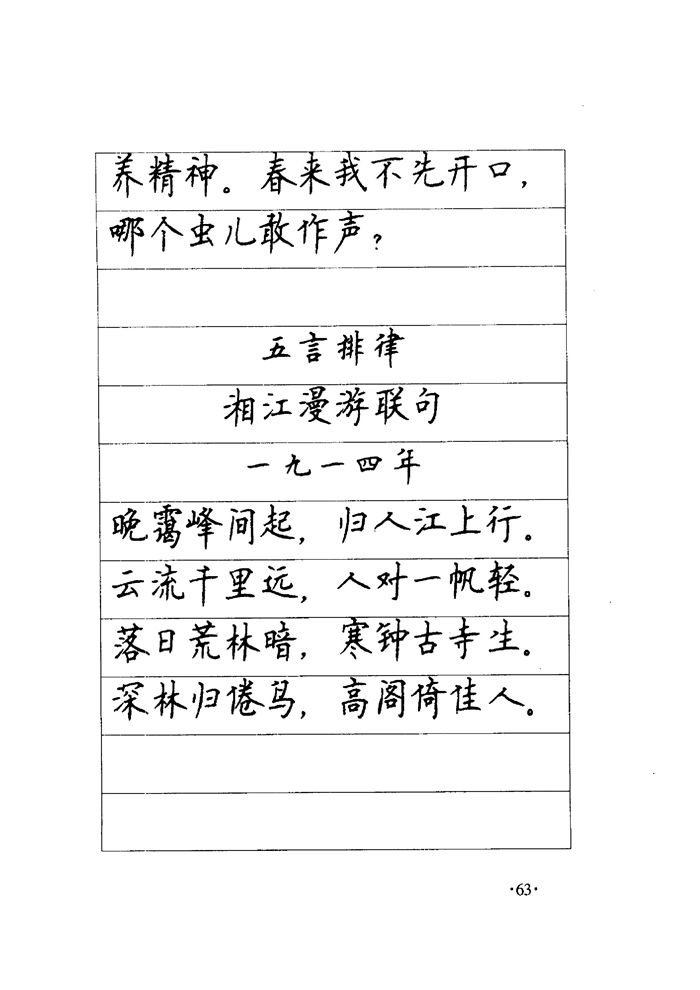 养精神。春来我不先开口，
哪个虫儿敢作声？
五言排律
湘江漫游联句
一九一四年
晚霭峰间起，归人江上行。
云流千里远，人对一帆轻。
落日荒林暗，寒钟古寺生。
深林归倦鸟，高阁倚佳人。
·63·